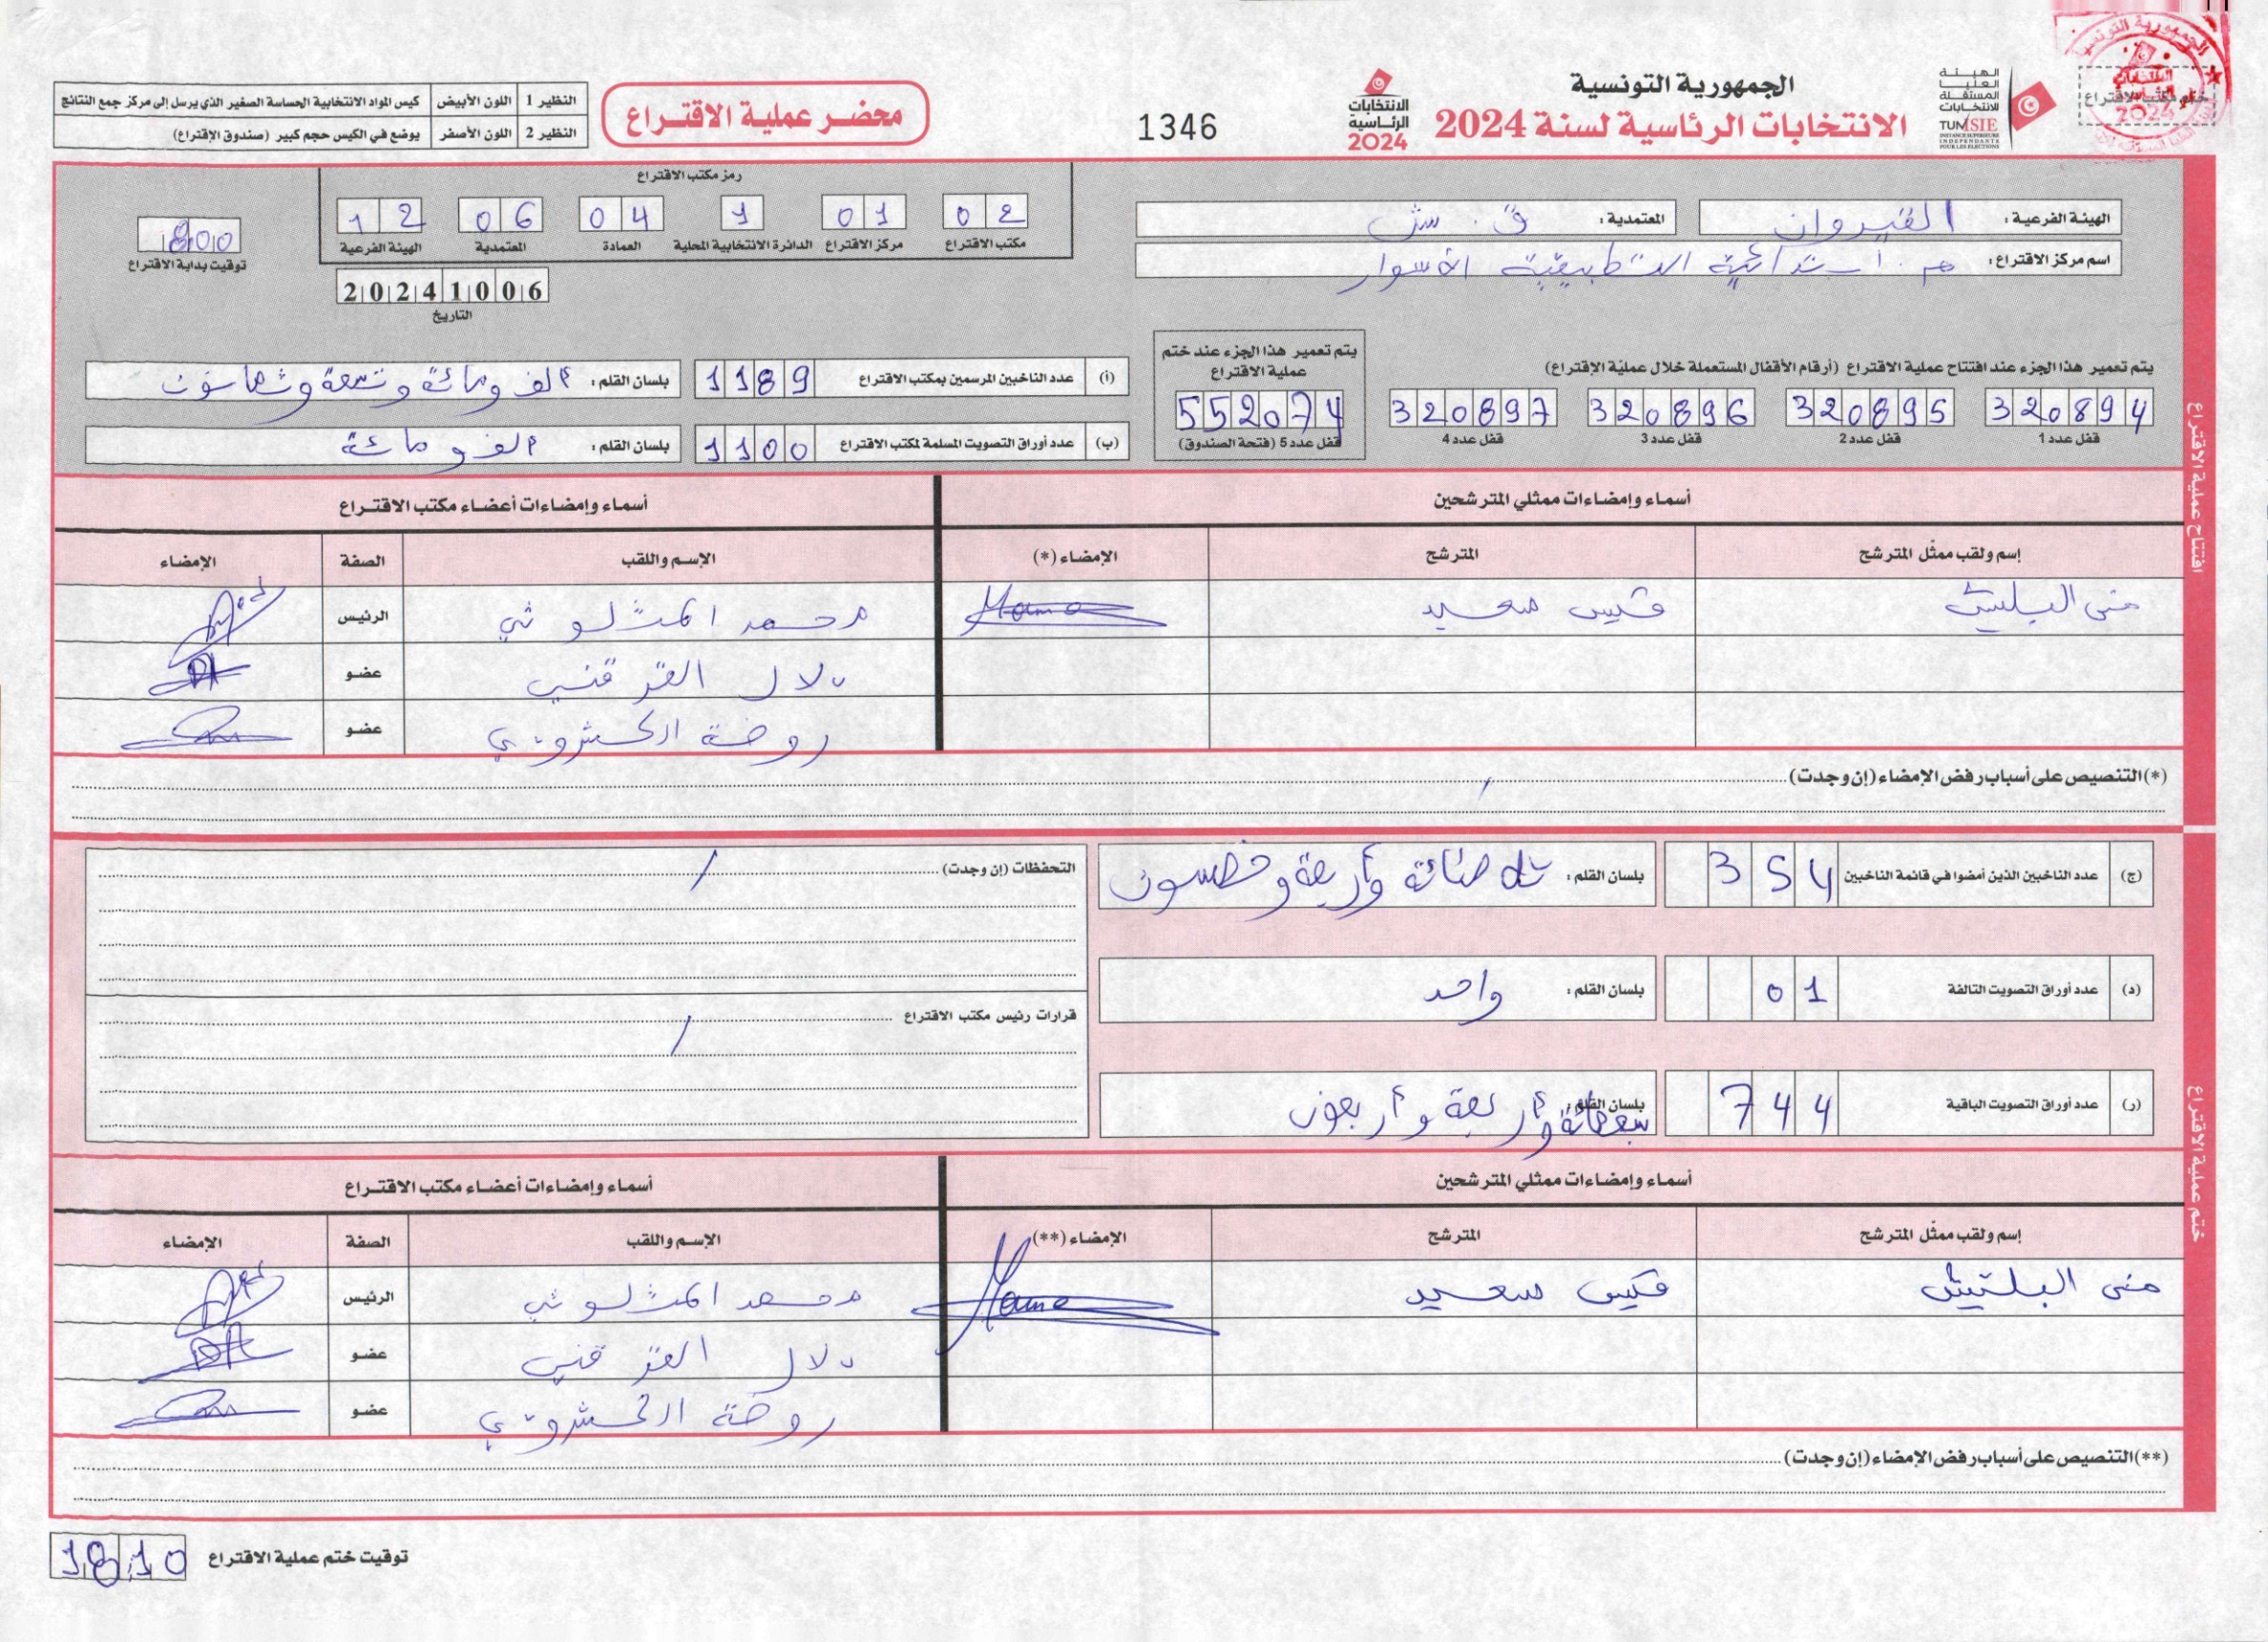 الجمهورية التونسية
الانتخابات الرئاسية لسنة 2024
الهيئة العليا المستقلة للانتخابات
TUNISIE
INSTANCE SUPERIEURE INDEPENDANTE POUR LES ELECTIONS
ختم مكتب الاقتراع
الانتخابات الرئاسية 2024
1346
محضر عملية الاقتراع
النظير 1 اللون الأبيض كيس المواد الانتخابية الحساسة الصغير الذي يرسل إلى مركز جمع النتائج
النظير 2 اللون الأصفر يوضع في الكيس حجم كبير (صندوق الإقتراع)
افتتاح عملية الاقتراع
الهيئة الفرعية: القيروان
المعتمدية: ق. ش
اسم مركز الاقتراع: م. ابتدائية التطبيقية الأسوار
رمز مكتب الاقتراع
02 01 1 04 06 12
مكتب الاقتراع مركز الاقتراع الدائرة الانتخابية المحلية العمادة المعتمدية الهيئة الفرعية
800
توقيت بداية الاقتراع
20241006
التاريخ
يتم تعمير هذا الجزء عند افتتاح عملية الاقتراع (أرقام الأقفال المستعملة خلال عملية الإقتراع)
320894 320895 320896 320897
قفل عدد 1 قفل عدد 2 قفل عدد 3 قفل عدد 4
يتم تعمير هذا الجزء عند ختم عملية الاقتراع
552074
قفل عدد 5 (فتحة الصندوق)
(أ) عدد الناخبين المرسمين بمكتب الاقتراع 1189 بلسان القلم: ألف ومائة وتسعة وثمانون
(ب) عدد أوراق التصويت المسلمة لمكتب الاقتراع 1100 بلسان القلم: ألف ومائة
أسماء وإمضاءات ممثلي المترشحين أسماء وإمضاءات أعضاء مكتب الاقتراع
إسم ولقب ممثّل المترشح المترشح الإمضاء (*) الإسم واللقب الصفة الإمضاء
منى قيس سعيد Mouna محمد الرئيس
دلال عضو
روضة عضو
(*) التنصيص على أسباب رفض الإمضاء (إن وجدت)
ختم عملية الاقتراع
(ج) عدد الناخبين الذين أمضوا في قائمة الناخبين 354 بلسان القلم: ثلاثمائة وأربعة وخمسون
(د) عدد أوراق التصويت التالفة 01 بلسان القلم: واحد
(ر) عدد أوراق التصويت الباقية 744 بلسان القلم: سبعمائة وأربعة وأربعون
التحفظات (إن وجدت) /
قرارات رئيس مكتب الاقتراع /
أسماء وإمضاءات ممثلي المترشحين أسماء وإمضاءات أعضاء مكتب الاقتراع
إسم ولقب ممثّل المترشح المترشح الإمضاء (**) الإسم واللقب الصفة الإمضاء
منى قيس سعيد Mouna محمد الرئيس
دلال عضو
روضة عضو
(**) التنصيص على أسباب رفض الإمضاء (إن وجدت)
توقيت ختم عملية الاقتراع 1810